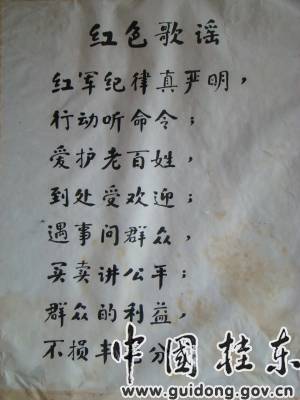 红色歌谣
红军纪律真严明，
行动听命令；
爱护老百姓，
到处受欢迎；
遇事问群众，
买卖讲公平；
群众的利益，
不损半分
中国桂东
www.guidong.gov.cn